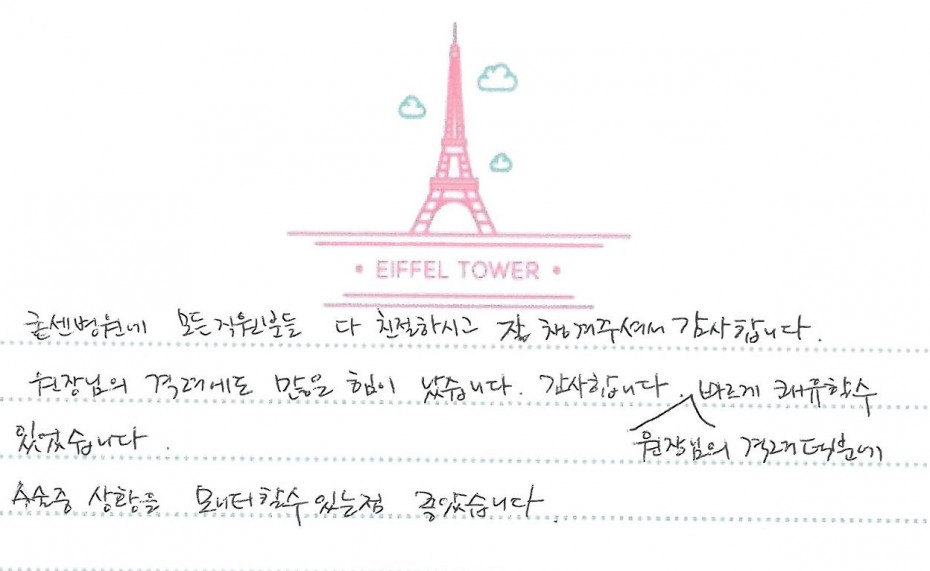 • EIFFEL TOWER •
굳센병원에 모든직원분들 다 친절하시고 잘 챙겨주셔서 감사합니다.
원장님의 격려에도 많은 힘이 났습니다. 감사합니다. 빠르게 쾌유할수
있었습니다.
원장님의 격려덕분에
수술중 상황을 모니터할수있는점 좋았습니다.